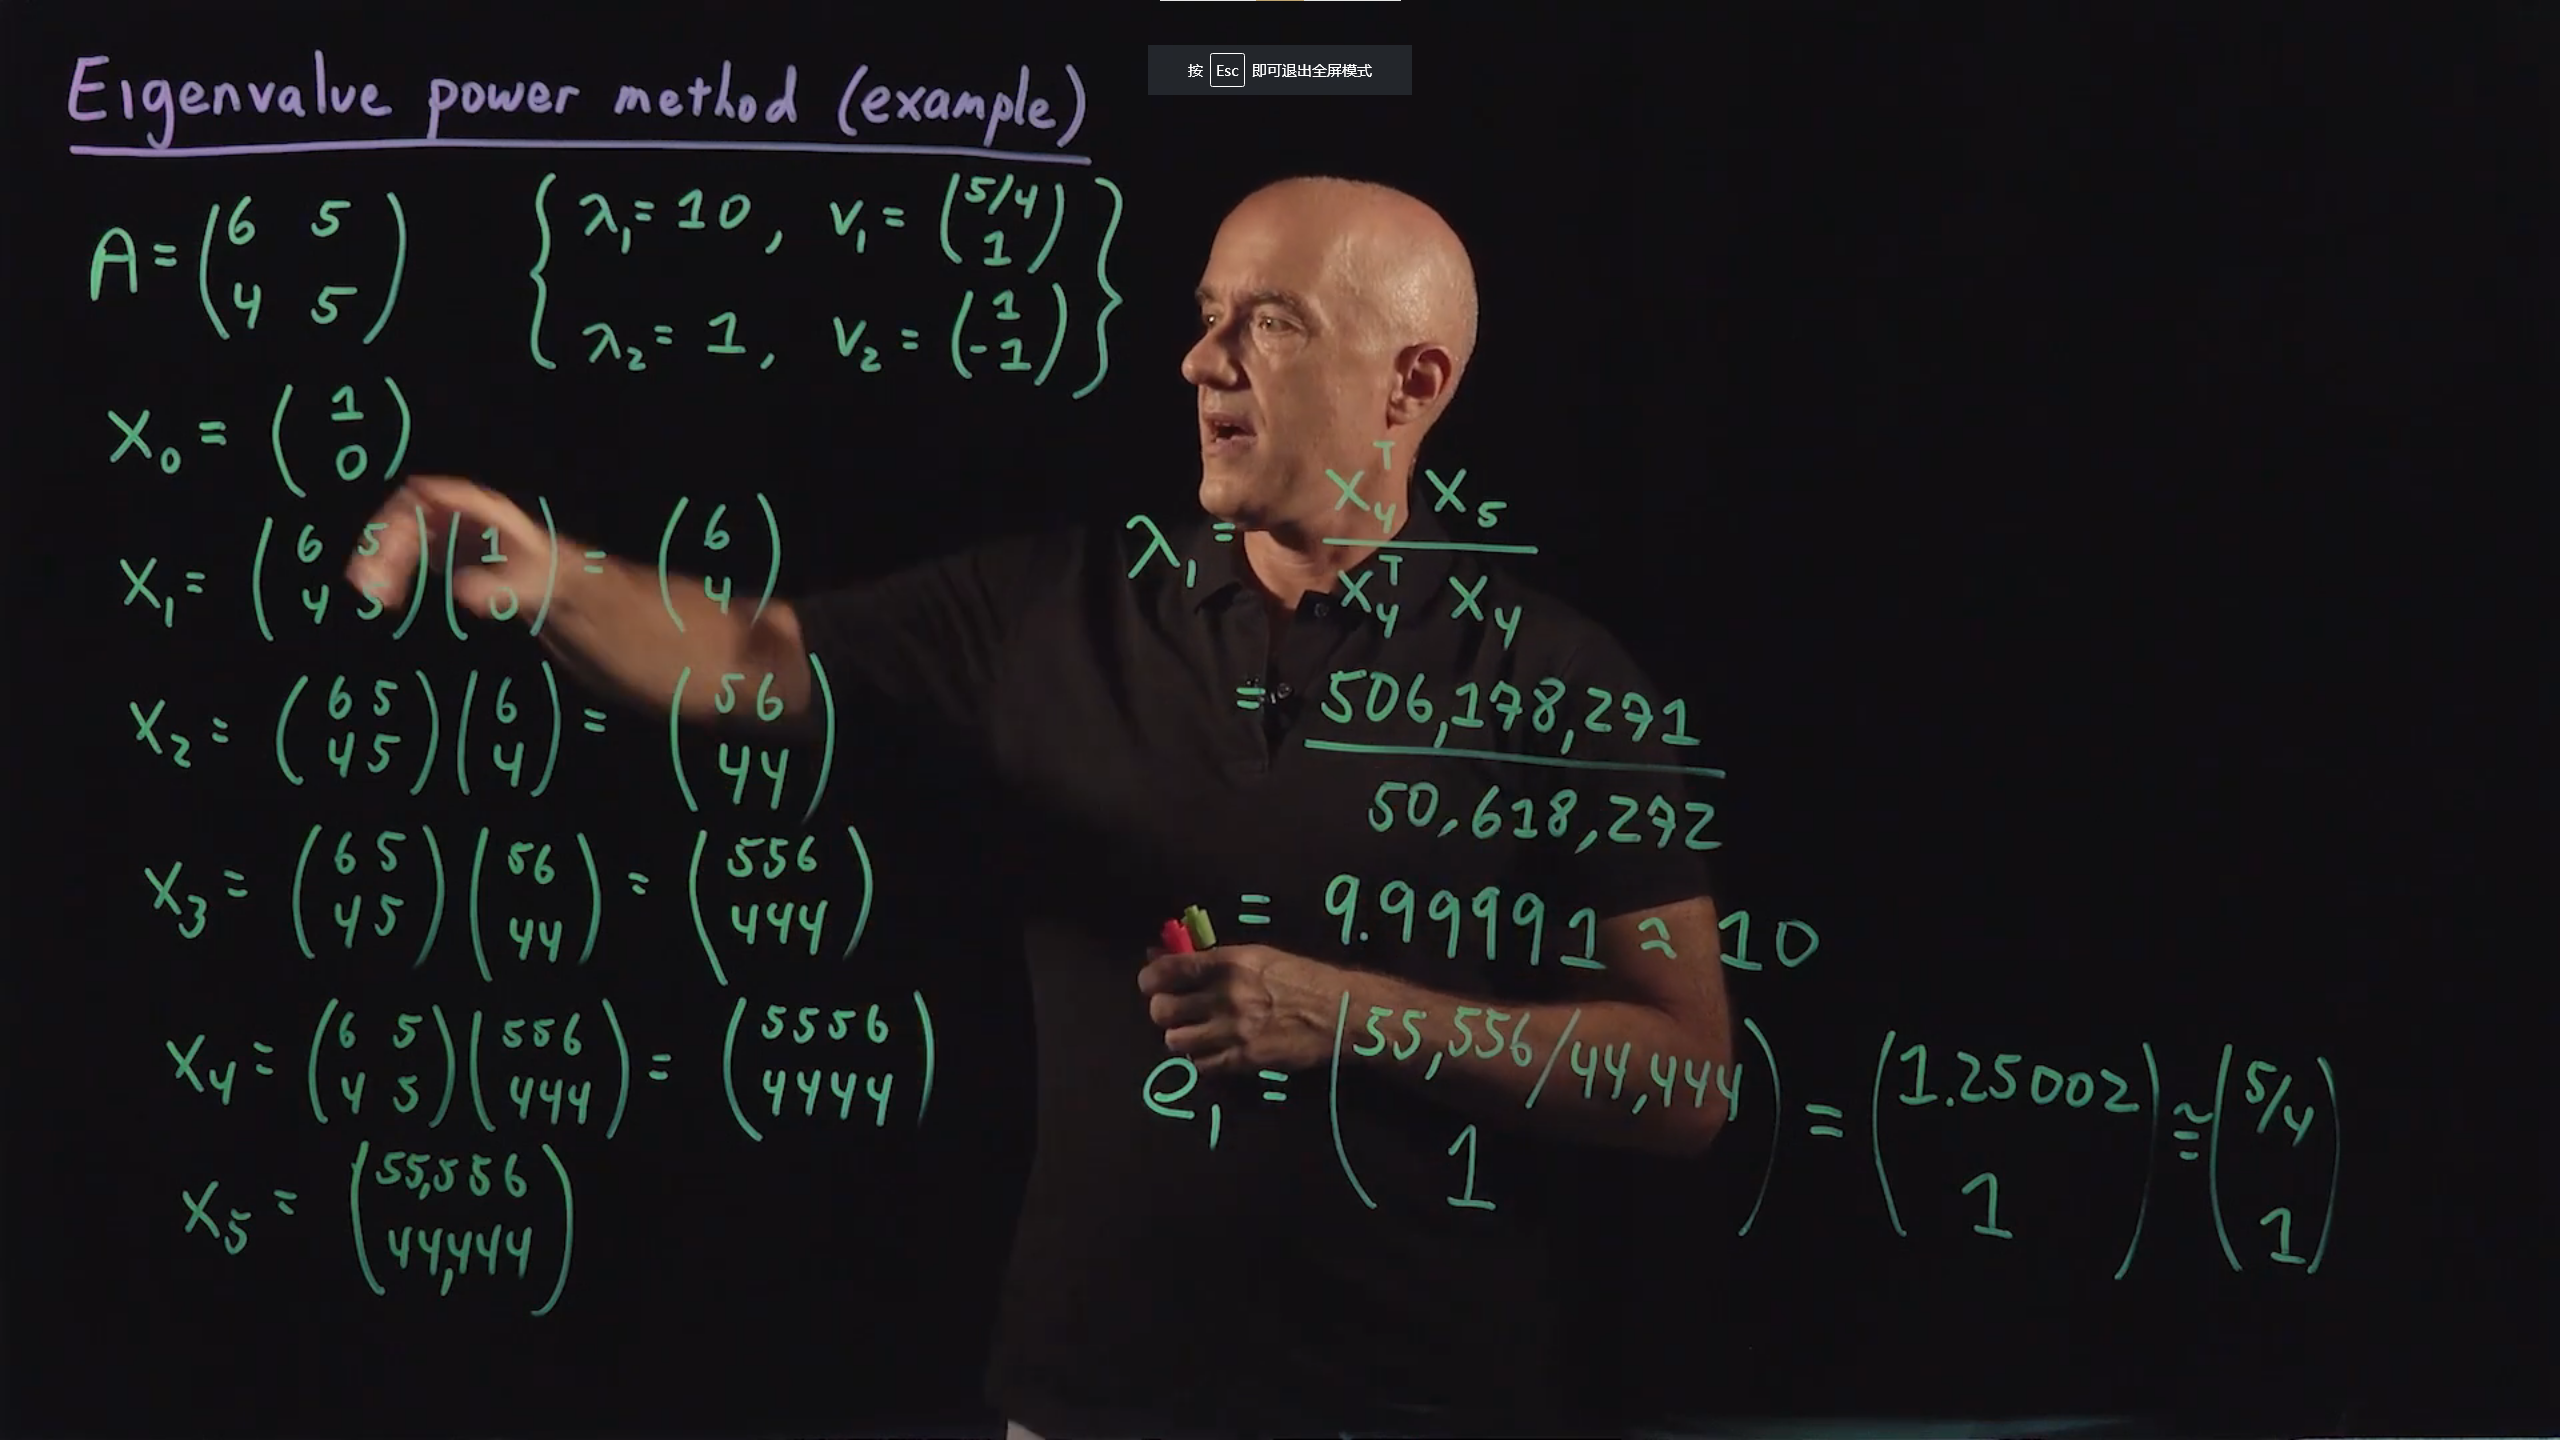 按 Esc 即可退出全屏模式
Eigenvalue power method (example)
A = (6 5; 4 5) { λ₁ = 10, v₁ = (5/4; 1)
λ₂ = 1, v₂ = (1; -1) }
x₀ = (1; 0)
x₁ = (6 5; 4 5)(1; 0) = (6; 4)
x₂ = (6 5; 4 5)(6; 4) = (56; 44)
x₃ = (6 5; 4 5)(56; 44) = (556; 444)
x₄ = (6 5; 4 5)(556; 444) = (5556; 4444)
x₅ = (55,556; 44,444)
λ₁ = x₄ᵀ x₅ / x₄ᵀ x₄
= 506,178,271 / 50,618,272
= 9.99991 ≈ 10
e₁ = (55,556/44,444; 1) = (1.25002; 1) ≅ (5/4; 1)